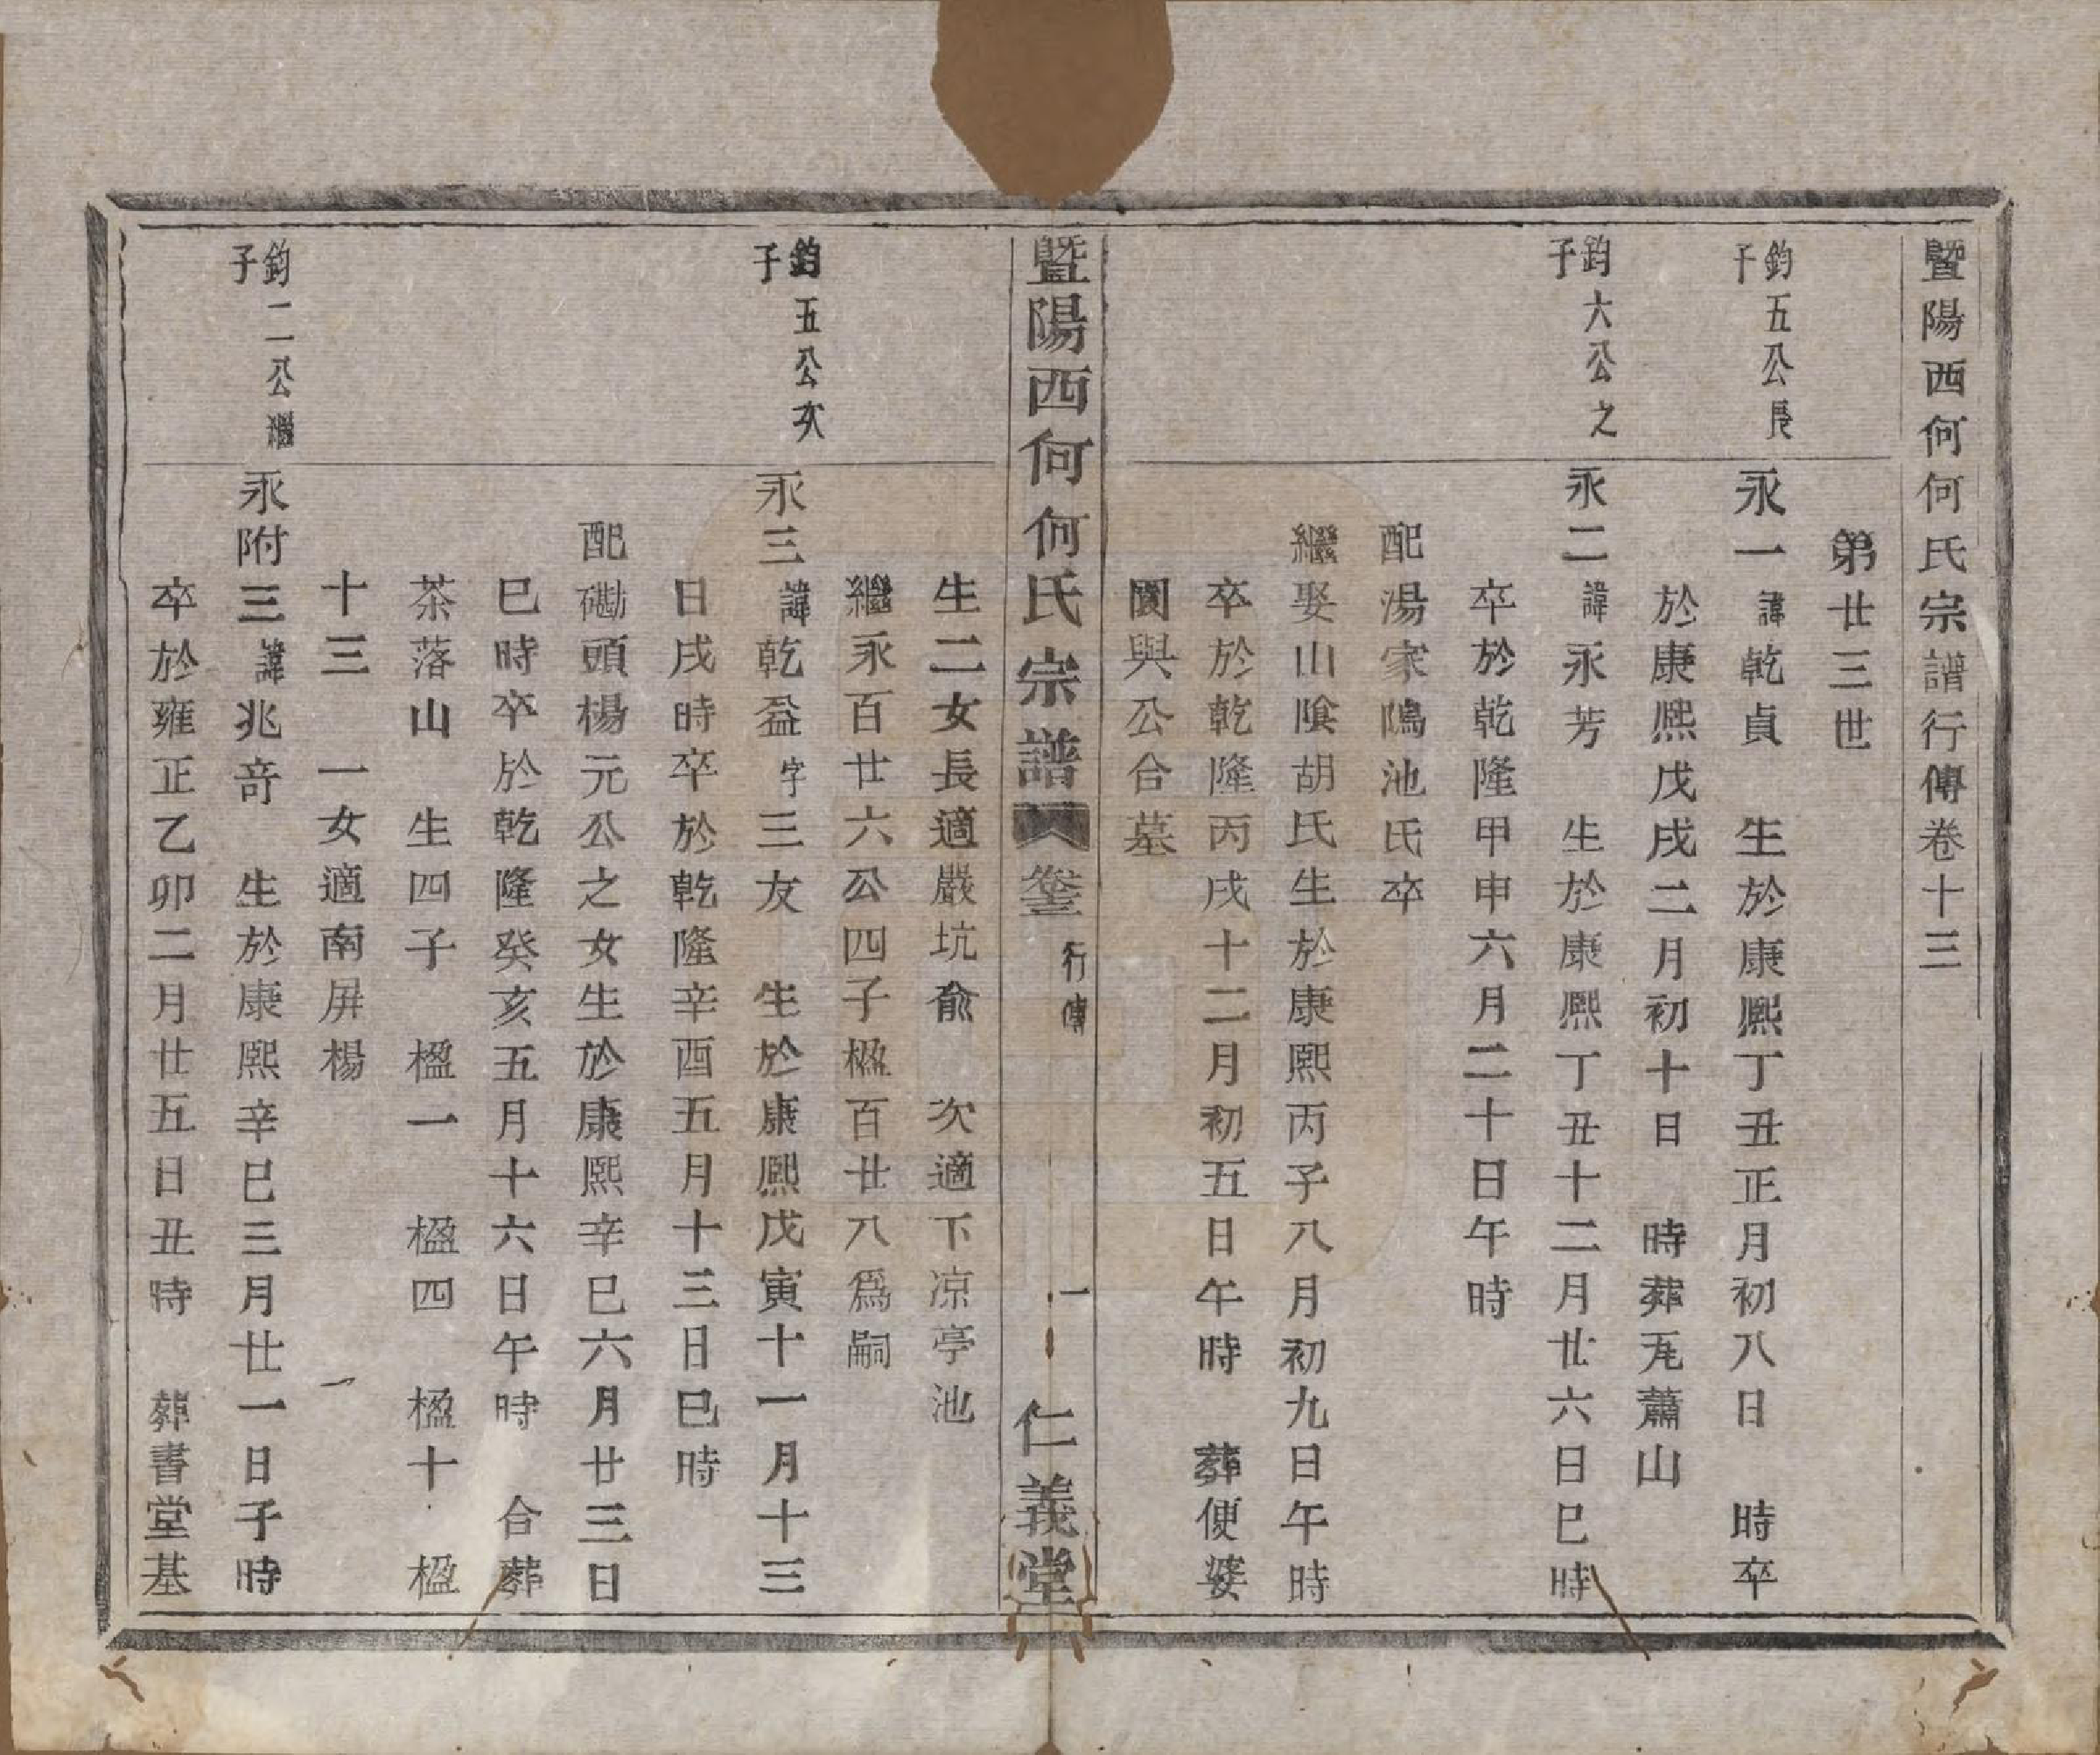 暨陽西何何氏宗譜行傳卷十三
第廿三世
鈞五公長子
永一諱乾貞　生於康熙丁丑正月初八日　時卒
於康熙戊戌二月初十日　時葬旡蕭山
鈞六公之子
永二諱永芳　生於康熙丁丑十二月廿六日巳時
卒於乾隆甲申六月二十日午時
配湯家隝池氏卒
繼娶山陰胡氏生於康熙丙子八月初九日午時
卒於乾隆丙戌十二月初五日午時　葬便婆
園與公合墓
暨陽西何何氏宗譜　卷十三　行傳　一　仁義堂
生二女長適嚴坑俞　次適下凉亭池
繼永百廿六公四子楹百廿八爲嗣
鈞五公次子
永三諱乾益字三友　生於康熙戊寅十一月十三
日戌時卒於乾隆辛酉五月十三日巳時
配磡頭楊元公之女生於康熙辛巳六月廿三日
巳時卒於乾隆癸亥五月十六日午時　合葬
茶落山　生四子　楹一　楹四　楹十　楹
十三　一女適南屏楊
鈞二公繼子
永附三諱兆奇　生於康熙辛巳三月廿一日子時
卒於雍正乙卯二月廿五日丑時　葬書堂基